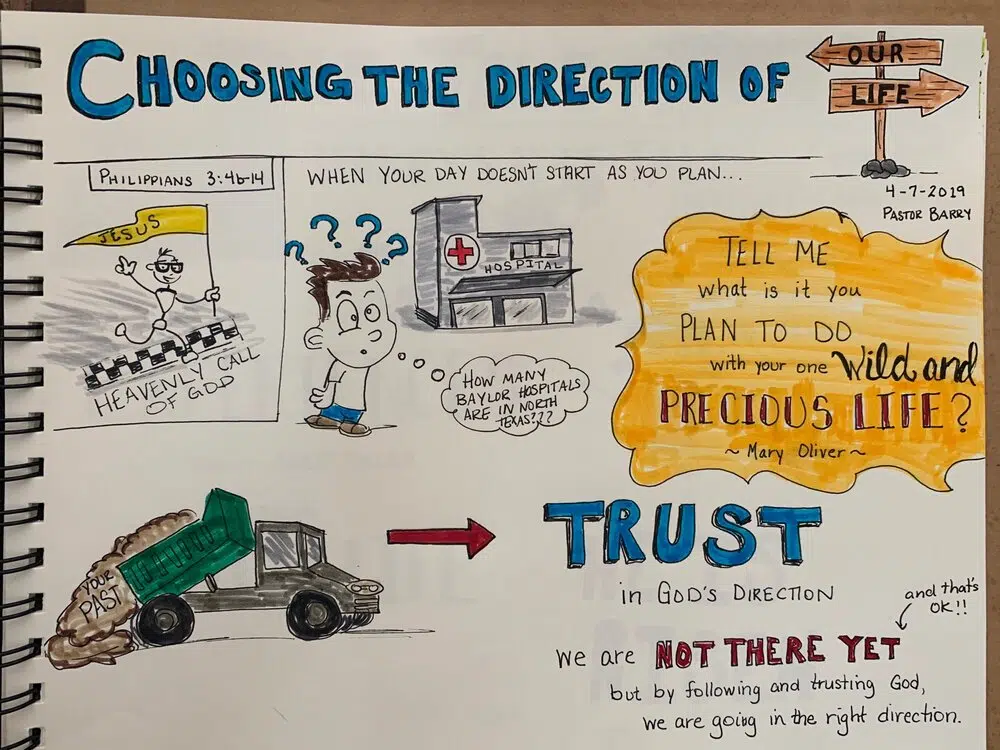 CHOOSING THE DIRECTION OF
OUR
LIFE
4-7-2019
PASTOR BARRY
PHILIPPIANS 3:4b-14
JESUS
HEAVENLY CALL
OF GOD
WHEN YOUR DAY DOESN'T START AS YOU PLAN...
? ? ? ?
HOSPITAL
HOW MANY
BAYLOR HOSPITALS
ARE IN NORTH
TEXAS???
TELL ME
what is it you
PLAN TO DO
with your one Wild and
PRECIOUS LIFE?
~ Mary Oliver ~
YOUR
PAST
TRUST
in GOD'S DIRECTION
and that's
OK!!
we are NOT THERE YET
but by following and trusting God,
we are going in the right direction.